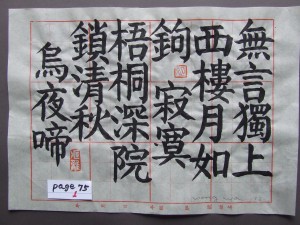 無言獨上
西樓月如
鉤 寂寞
梧桐深院
鎖清秋
烏夜啼
page 75